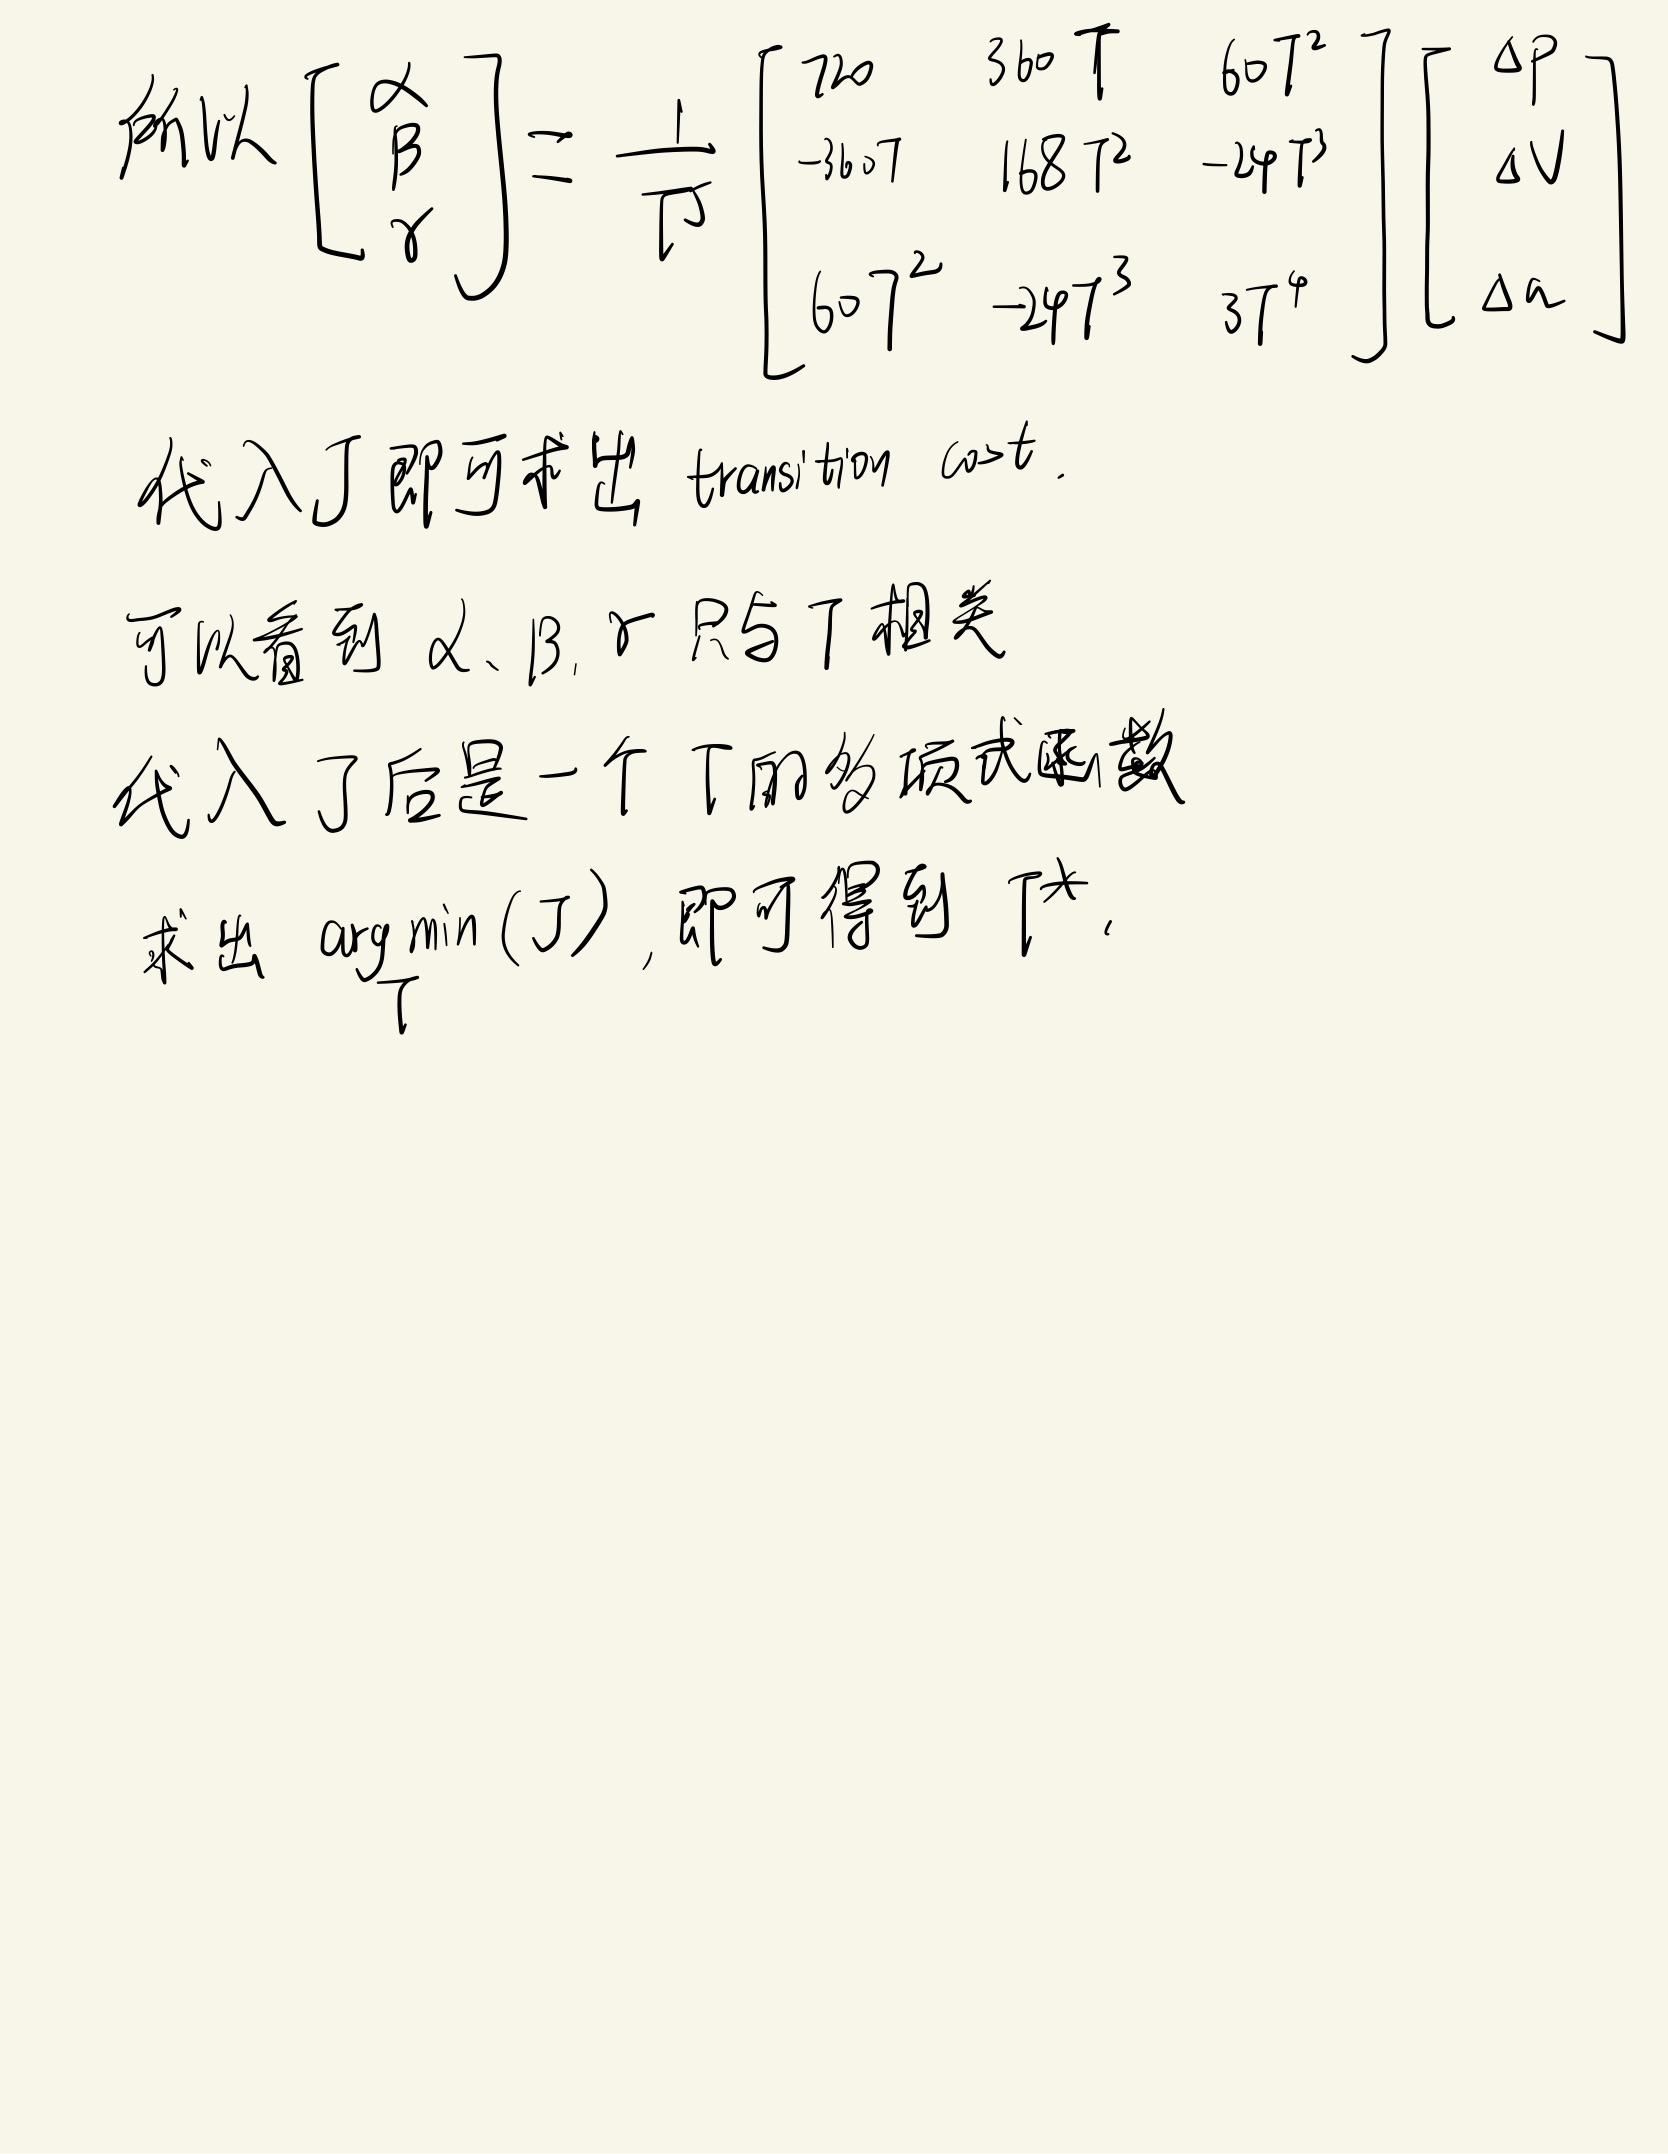 所以 [α β γ] = 1/T⁵ [720 360T 60T²; -360T 168T² -24T³; 60T² -24T³ 3T⁴] [Δp Δv Δa]
代入J即可求出 transition cost.
可以看到 α、β、γ 只与T相关
代入J后是一个 T的多项式函数
求出 argmin(J), 即可得到 T*.
T